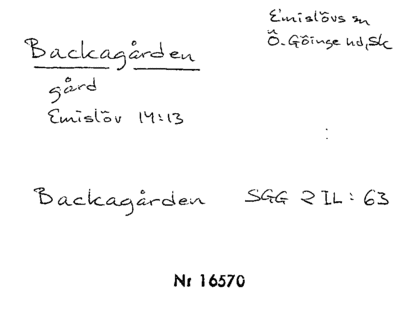 Emislövs sn
Backagården
Ö. Göinge hd, Sk
gård
Emislöv 14:13
Backagården SGG 2 IL: 63
Nr 16570